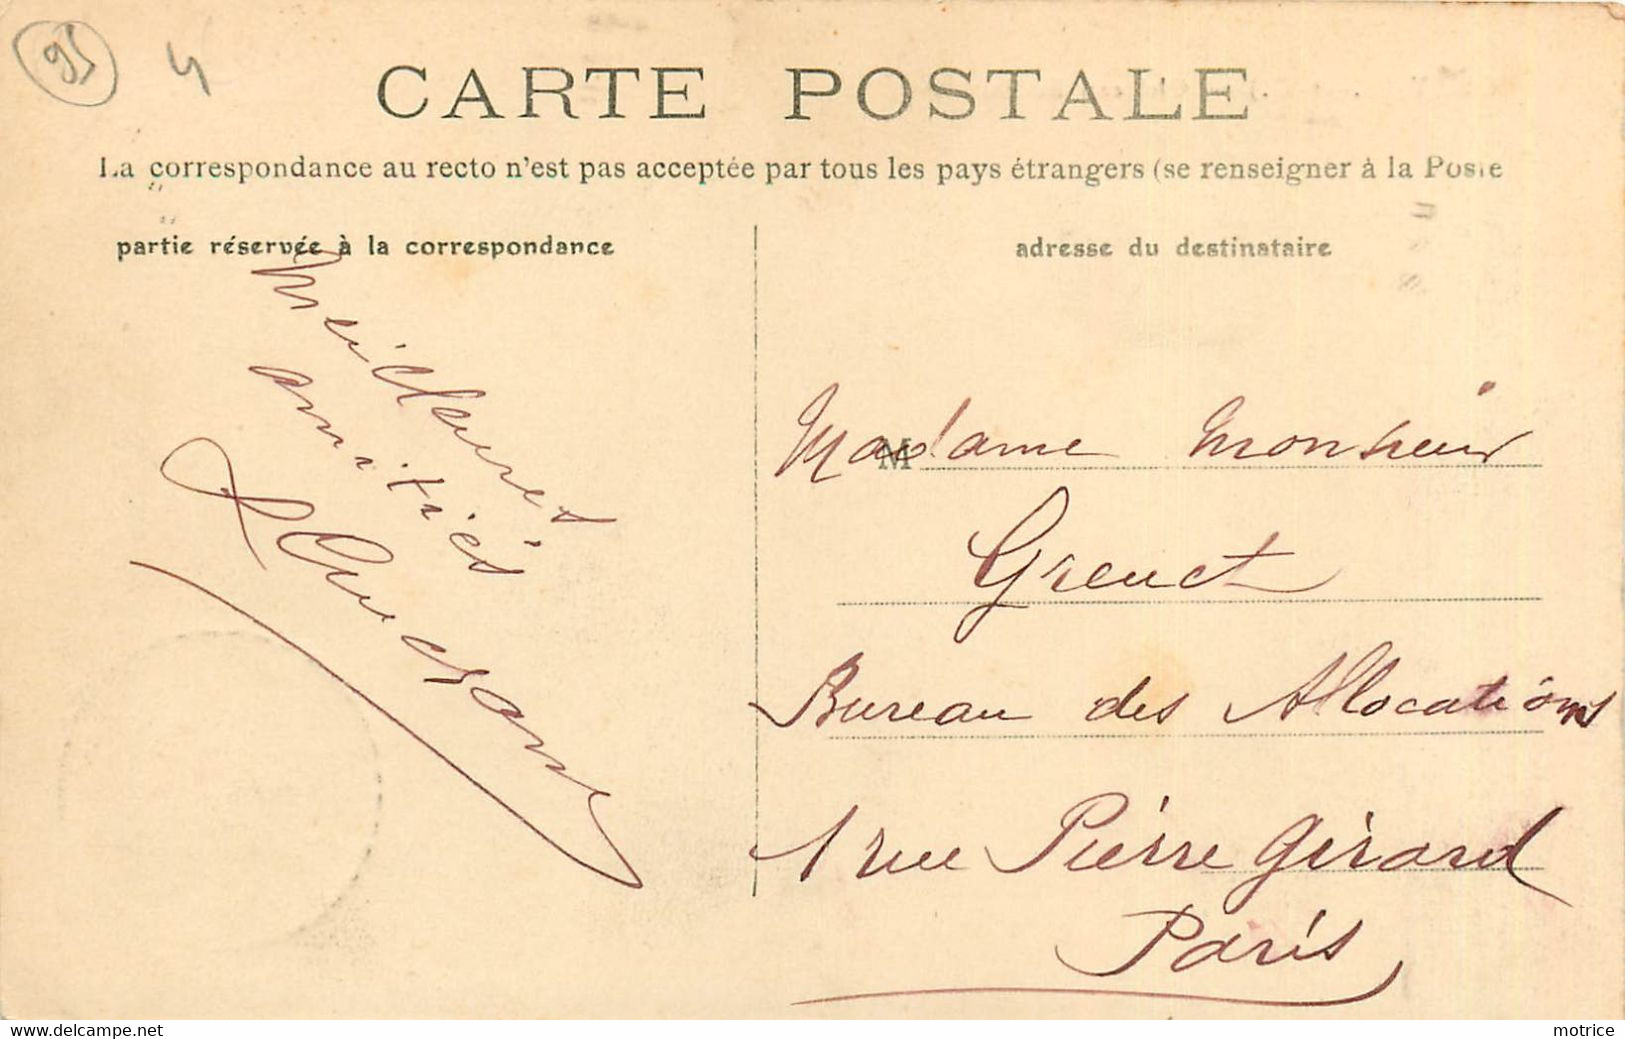 95
4
CARTE POSTALE
La correspondance au recto n'est pas acceptée par tous les pays étrangers (se renseigner à la Poste
partie réservée à la correspondance
adresse du destinataire
Meilleures
amitiés
M
Madame Monsieur
Grenet
Bureau des Allocations
1 rue Pierre Girard
Paris
www.delcampe.net
motrice